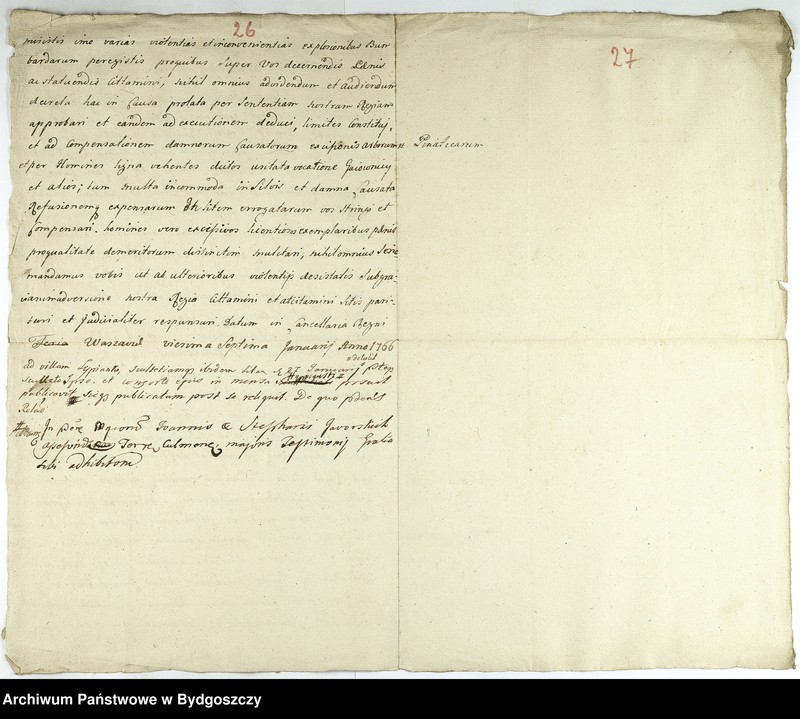 26
miristis imo varias violentias et inconvenientias explosionibus Bom
bardarum peregistis proquibus super Vos decernendis Pœnis
ac statuendis Attamini, nihil omnius advidendum et audiendum
decreta hac in Causa prolata per Sententiam nostram Regiam
approbari et eandem ad executionem deduci, limites Constitui,
et ad compensationem damnorum Causatorum excisionis Arborum
et per Homines ligna vehentes dictos usitata vocatione
et alios; tum multa incommoda in Silvis et damna Causata
Refusionemq expensarum litem errogatarum vos Stringi et
Compensari. homines vero excessivos licentiosos exemplaribus pœnis
proqualitate demeritorum distinctim mulctari, nihilomnius Serio
mandamus vobis ut ab ulterioribus violentijs desistatis Subgra-
vi animadversione nostra Regia Attamini et attamini sitis pari-
turi et Judicialiter responsuri. Datum in Cancellaria Regni
Feria Warszavæ vicesima Septima Januarij Anno 1766
ad villam Lypianko, ibidem sitam 27 Januarij
et consorte ejus in mensa posuit
publicavit Sicq publicatum post se reliquit. De quo
Relão
In Joannis & Stephani Javorskich
Terræ Culmone, majoris Testimonij gratia
sibi adhibitom
27
Pinatecarum
Archiwum Państwowe w Bydgoszczy